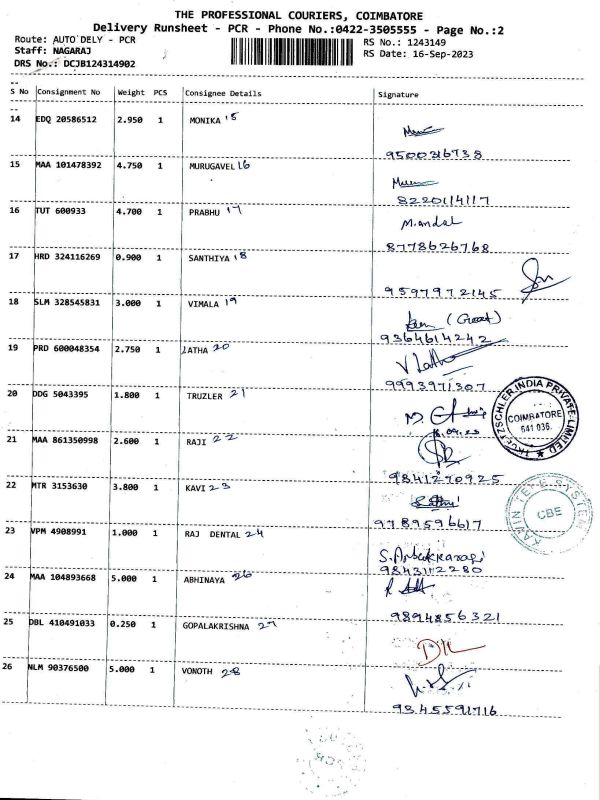 THE PROFESSIONAL COURIERS, COIMBATORE
Delivery Runsheet - PCR - Phone No.:0422-3505555 - Page No.:2
Route: AUTO DELY - PCR
RS No.: 1243149
Staff: NAGARAJ
RS Date: 16-Sep-2023
DRS No.: DCJB124314902
S No Consignment No Weight PCS Consignee Details Signature
14 EDQ 20586512 2.950 1 MONIKA 15
9500216738
15 MAA 101478392 4.750 1 MURUGAVEL 16
8220114117
16 TUT 600933 4.700 1 PRABHU 17
8778626768
17 HRD 324116269 0.900 1 SANTHIYA 18
9597972145
18 SLM 328545831 3.000 1 VIMALA 19
9364614242
19 PRD 600048354 2.750 1 LATHA 20
V. Latha
9993971307
20 DDG 5043395 1.800 1 TRUZLER 21
COIMBATORE
641 036.
21 MAA 861350998 2.600 1 RAJI 22
9841270925
22 MTR 3153630 3.800 1 KAVI 23
9789596617
KAVIN TELE SYSTEM
CBE
23 VPM 4908991 1.000 1 RAJ DENTAL 24
9843112280
24 MAA 104893668 5.000 1 ABHINAYA 26
9894856321
25 DBL 410491033 0.250 1 GOPALAKRISHNA 27
26 NLM 90376500 5.000 1 VONOTH 28
9345591716